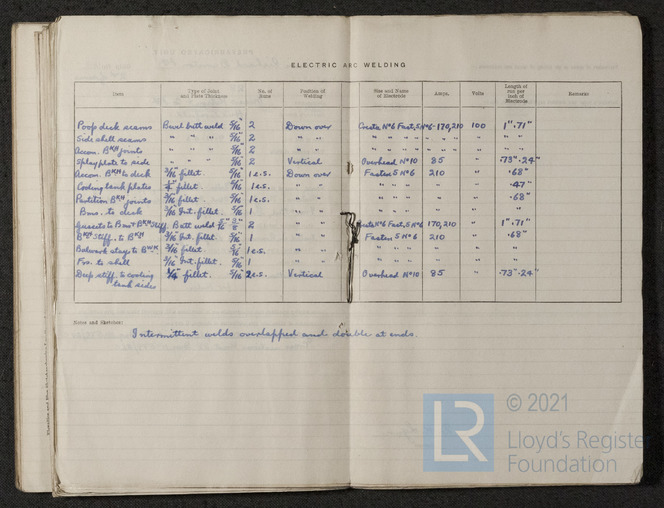 ELECTRIC ARC WELDING
Date Type of Joint and Plate Thickness No. of Runs Position of Welding Size and Name of Electrode Amps. Volts Length of run per inch of Electrode Remarks
Poop deck seams Bevel butt weld 5/16" 2 Down over Creta Nº6 Fast, 5 Nº6 170,210 100 1".71"
Side shell seams " " " 5/16" 2 " " " " " " " " "
Accom. BKH joints " " " 5/16" 2 " " " " " " " " "
Splayplate to side " " " 5/16" 2 Vertical Overhead Nº10 85 " .73".24"
Accom. BKH to deck 3/16" fillet. 5/16" 1 e.s. Down over Fasten 5 Nº6 210 " .68"
Cooling tank plates 1/4" fillet. 1 e.s. " " " " " " " .47"
Partition BKH joints 3/16" fillet. 5/16" 1 e.s. " " " " " " " .68"
Bms. to deck 3/16" Int. fillet. 5/16" 1 " " " " " " " "
Gussets to Bms + BKH Stiff. Butt weld 2 " " Nº6 Fast, 5 Nº6 170,210 " 1".71"
BKH Stiff. to BKH 3/16" Int. fillet. 5/16" 1 " " Fasten 5 Nº6 210 " .68"
Bulwark stays to BWK. 3/16" fillet. 5/16" 1 e.s. " " " " " " " "
Frs. to shell 3/16" Int. fillet. 5/16" 1 " " " " " " " "
Deep stiff. to cooling 1/4" fillet. 5/16" 2 e.s. Vertical Overhead Nº10 85 " .73".24"
tank sides
Notes and Sketches:
Intermittent welds overlapped and double at ends.
© 2021
LR Lloyd's Register
Foundation